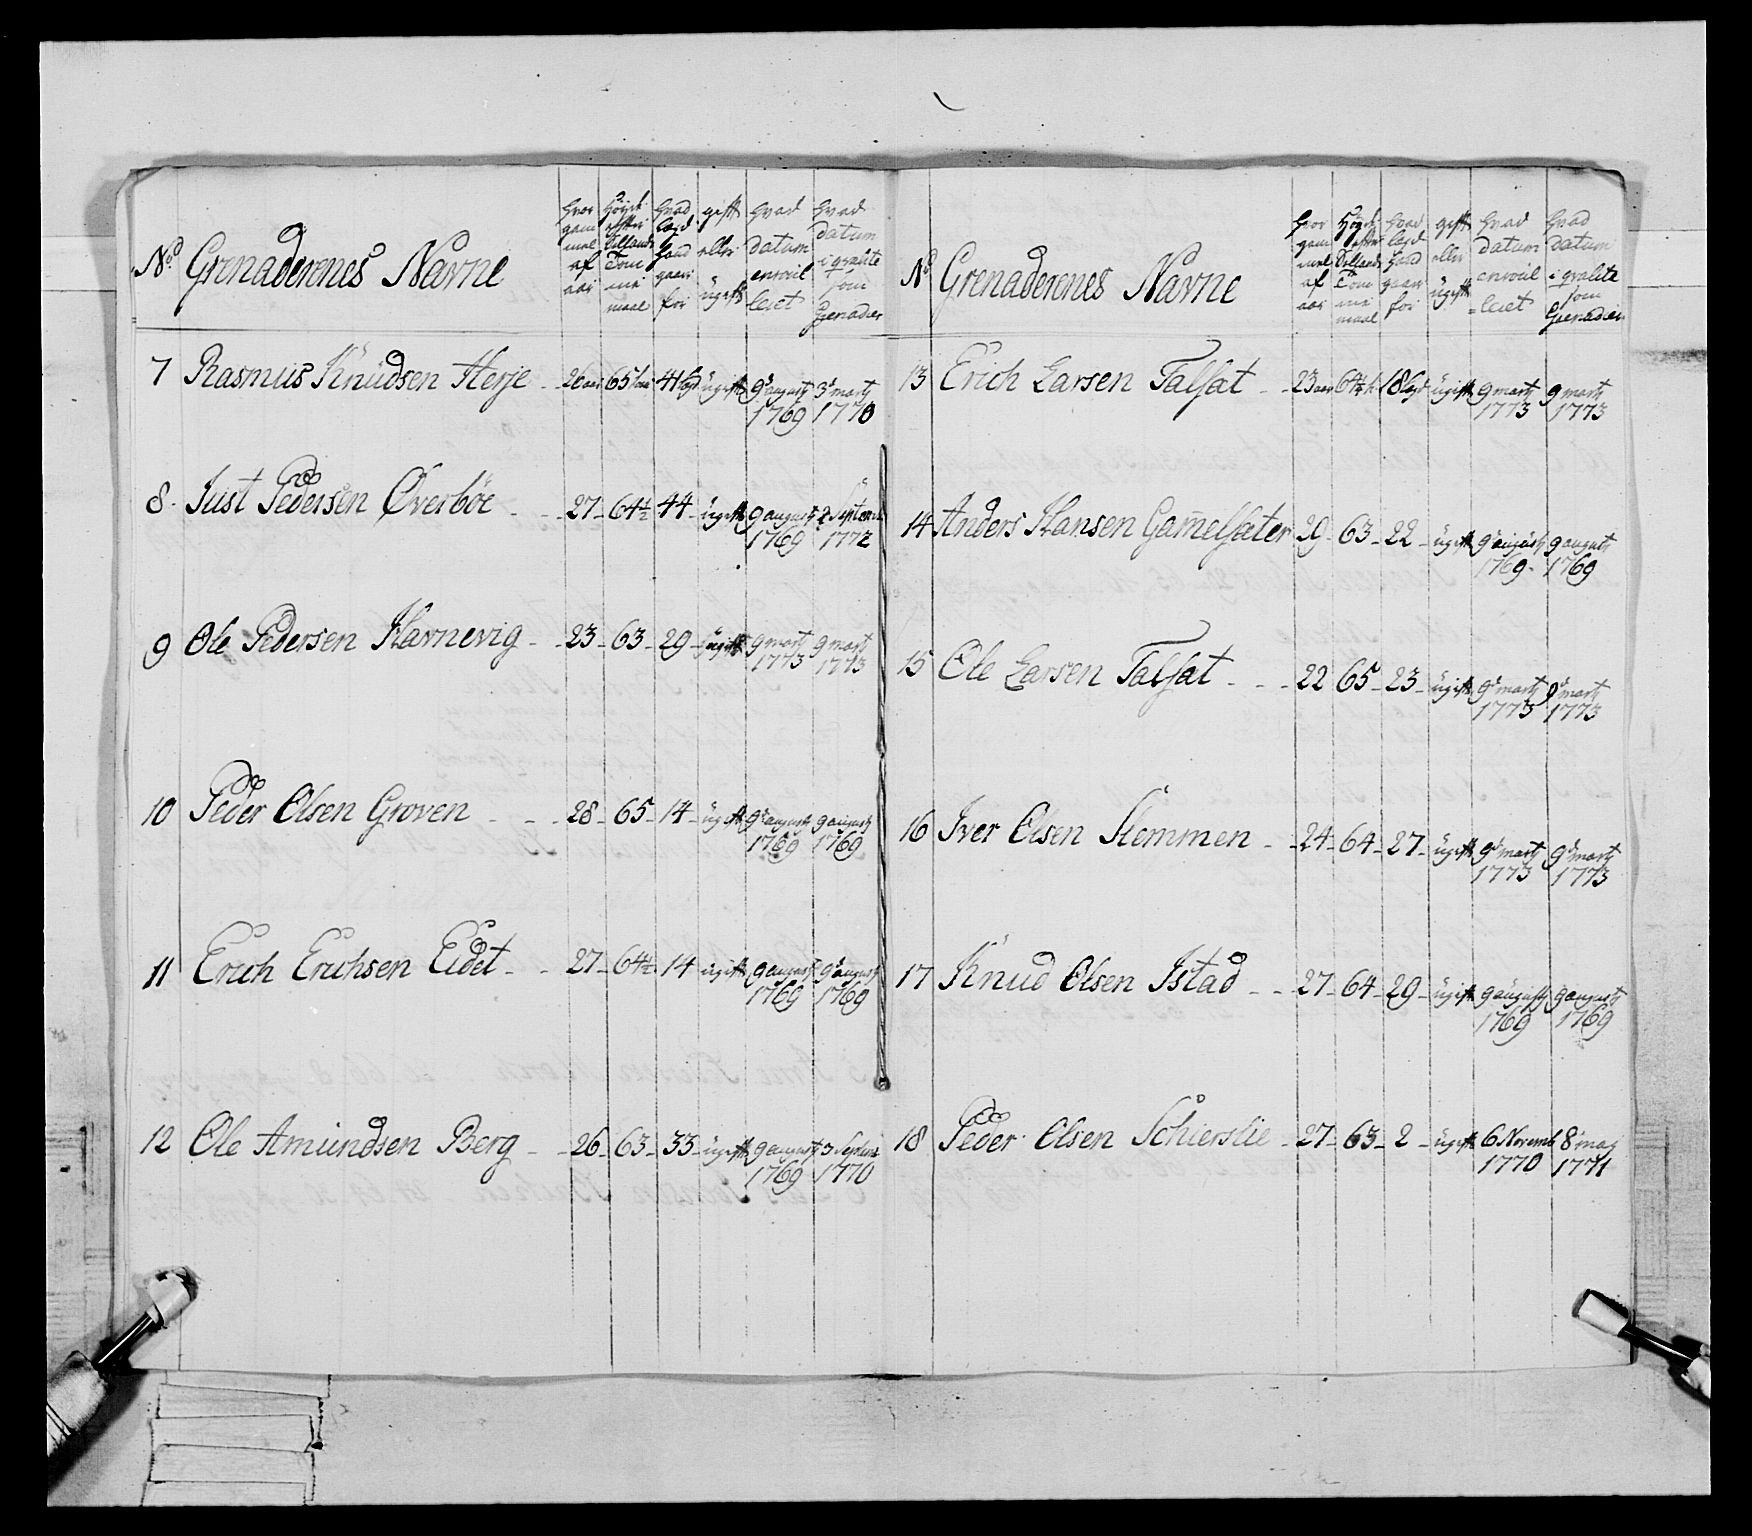 No Grenaderenes Navne
hvor gam mel af aar
Høyde efter Sellands Tom me maal
hvad legd hand gaar for
gift eller ugift
hvad datum enroulleret
hvad datum i qvalite som Grenader
7 Rasmus Knudsen Herje 26 aar 65 41 legd ugift 9d august 1769 3d marty 1770
8 Just Pedersen Øverbøe 27 64½ 44 ugift 9 august 1769 2 Septemb 1772
9 Ole Pedersen Havnevig 23 63 29 ugift 9 marty 1773 9 marty 1773
10 Peder Olsen Groven 28 65 14 ugift 9d august 1769 9 august 1769
11 Erich Erichsen Eidet 27 64½ 14 ugift 9 august 1769 9d august 1769
12 Ole Amundsen Berg 26 63 33 ugift 9 august 1769 3 Septemb 1770
No Grenaderenes Navne
hvor gam mel af aar
Høyde efter Sellands Tom me maal
hvad legd hand gaar for
gift eller ugift
hvad datum enroulleret
hvad datum i qvalite som Grenader
13 Erich Larsen Talsat 23 aar 64½ 18 legd ugift 9 marty 1773 9 marty 1773
14 Anders Hansen Gam̄elsæter 29 63 22 ugift 9d august 1769 9 august 1769
15 Ole Larsen Talsat 22 65 23 ugift 9d marty 1773 9d marty 1773
16 Iver Olsen Hemmen 24 64 27 ugift 9d marty 1773 9d marty 1773
17 Knud Olsen Istad 27 64 29 ugift 9 august 1769 9 august 1769
18 Peder Olsen Schierslie 27 63 2 ugift 6 Novemb 1770 8d may 1771